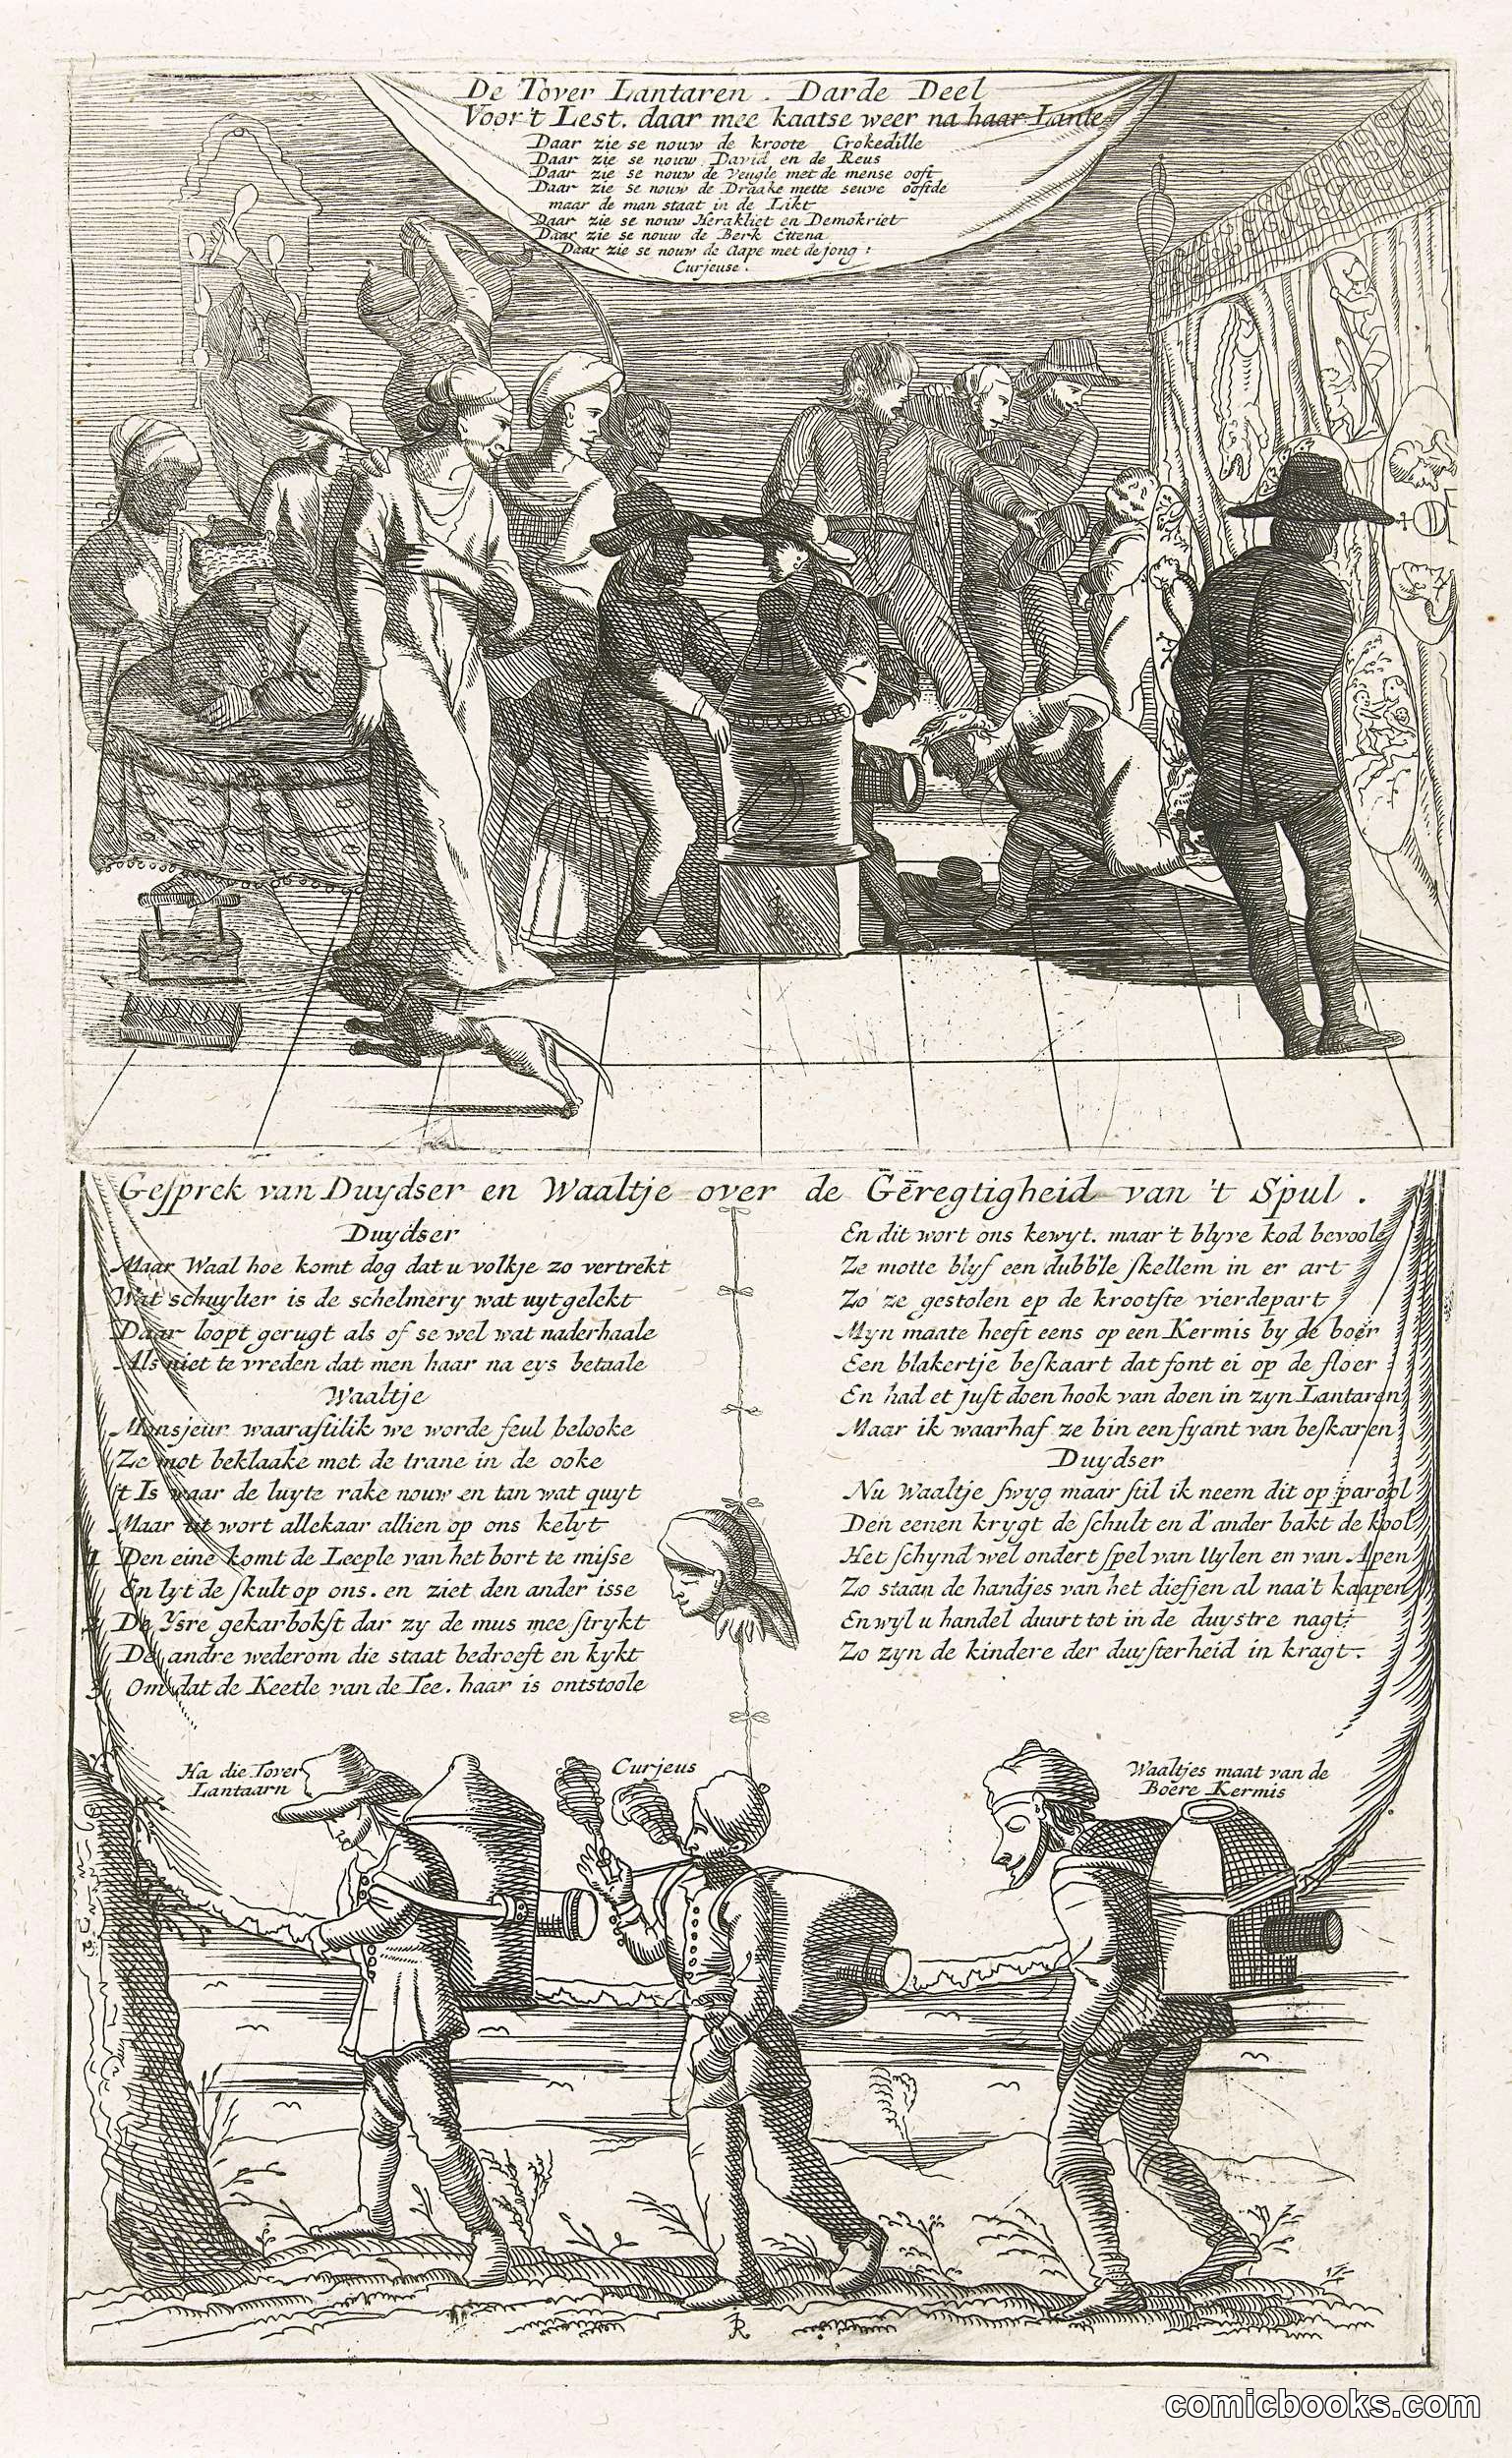 De Tover Lantaren. Darde Deel
Voor 't Lest. daar mee kaatse weer na haar Lante
Daar zie se nouw de kroote Crokedille
Daar zie se nouw David en de Reus
Daar zie se nouw de Veugle met de mense ooft
Daar zie se nouw de Draake mette seuve oofide
maar de man staat in de Likt
Daar zie se nouw Herakliet en Demokriet
Daar zie se nouw de Berk Ettena
Daar zie se nouw de Aape met de jong :
Curjeuse.
Gesprek van Duydser en Waaltje over de Geregtigheid van 't Spul.
Duydser
Maar Waal hoe komt dog dat u volkje zo vertrekt
Wat schuylter is de schelmery wat uytgelekt
Daar loopt gerugt als of se wel wat naderhaale
Als niet te vreden dat men haar na eys betaale
Waaltje
Monsjeur waarastilik we worde feul belooke
Ze mot beklaake met de trane in de ooke
't Is waar de luyte rake nouw en tan wat quyt
Maar tit wort allekaar allien op ons kelyt
1 Den eine komt de Leeple van het bort te misse
En lyt de skult op ons. en ziet den ander isse
2 De Ysre gekarbokst dar zy de mus mee strykt
De andre wederom die staat bedroeft en kykt
3 Om dat de Keetle van de Tee. haar is ontstoole
En dit wort ons kewyt. maar 't blyve kod bevoole
Ze motte blyf een dubb'le skellem in er art
Zo ze gestolen ep de krootste vierdepart
Myn maate heeft eens op een Kermis by de boer
Een blakertje beskaart dat font ei op de floer :
En had et just doen hook van doen in zyn Lantaren
Maar ik waarhaf ze bin een fyant van beskaren
Duydser
Nu Waaltje swyg maar stil ik neem dit op parool
Den eenen krygt de schult en d'ander bakt de kool
Het schynd wel ondert spel van Uylen en van Apen
Zo staan de handjes van het diefjen al naa't kaapen
En wyl u handel duurt tot in de duystre nagt:
Zo zyn de kindere der duysterheid in kragt.
Ha die Tover
Lantaarn
Curjeus
Waaltjes maat van de
Boere Kermis
comicbooks.com